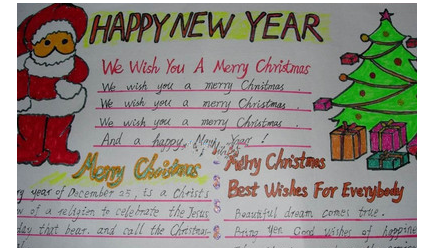 HAPPY NEW YEAR
We Wish You A Merry Christmas
We wish you a merry Christmas.
We wish you a merry Christmas.
We wish you a merry Christmas.
And a happy New Year!
Merry Christmas
y year of December 25, is a Christ
of a religion to celebrate the Jesus
day that bear. and call the Christmas
Merry Christmas
Best Wishes For Everybody
Beautiful dream comes true.
Bring you Good wishes of happine